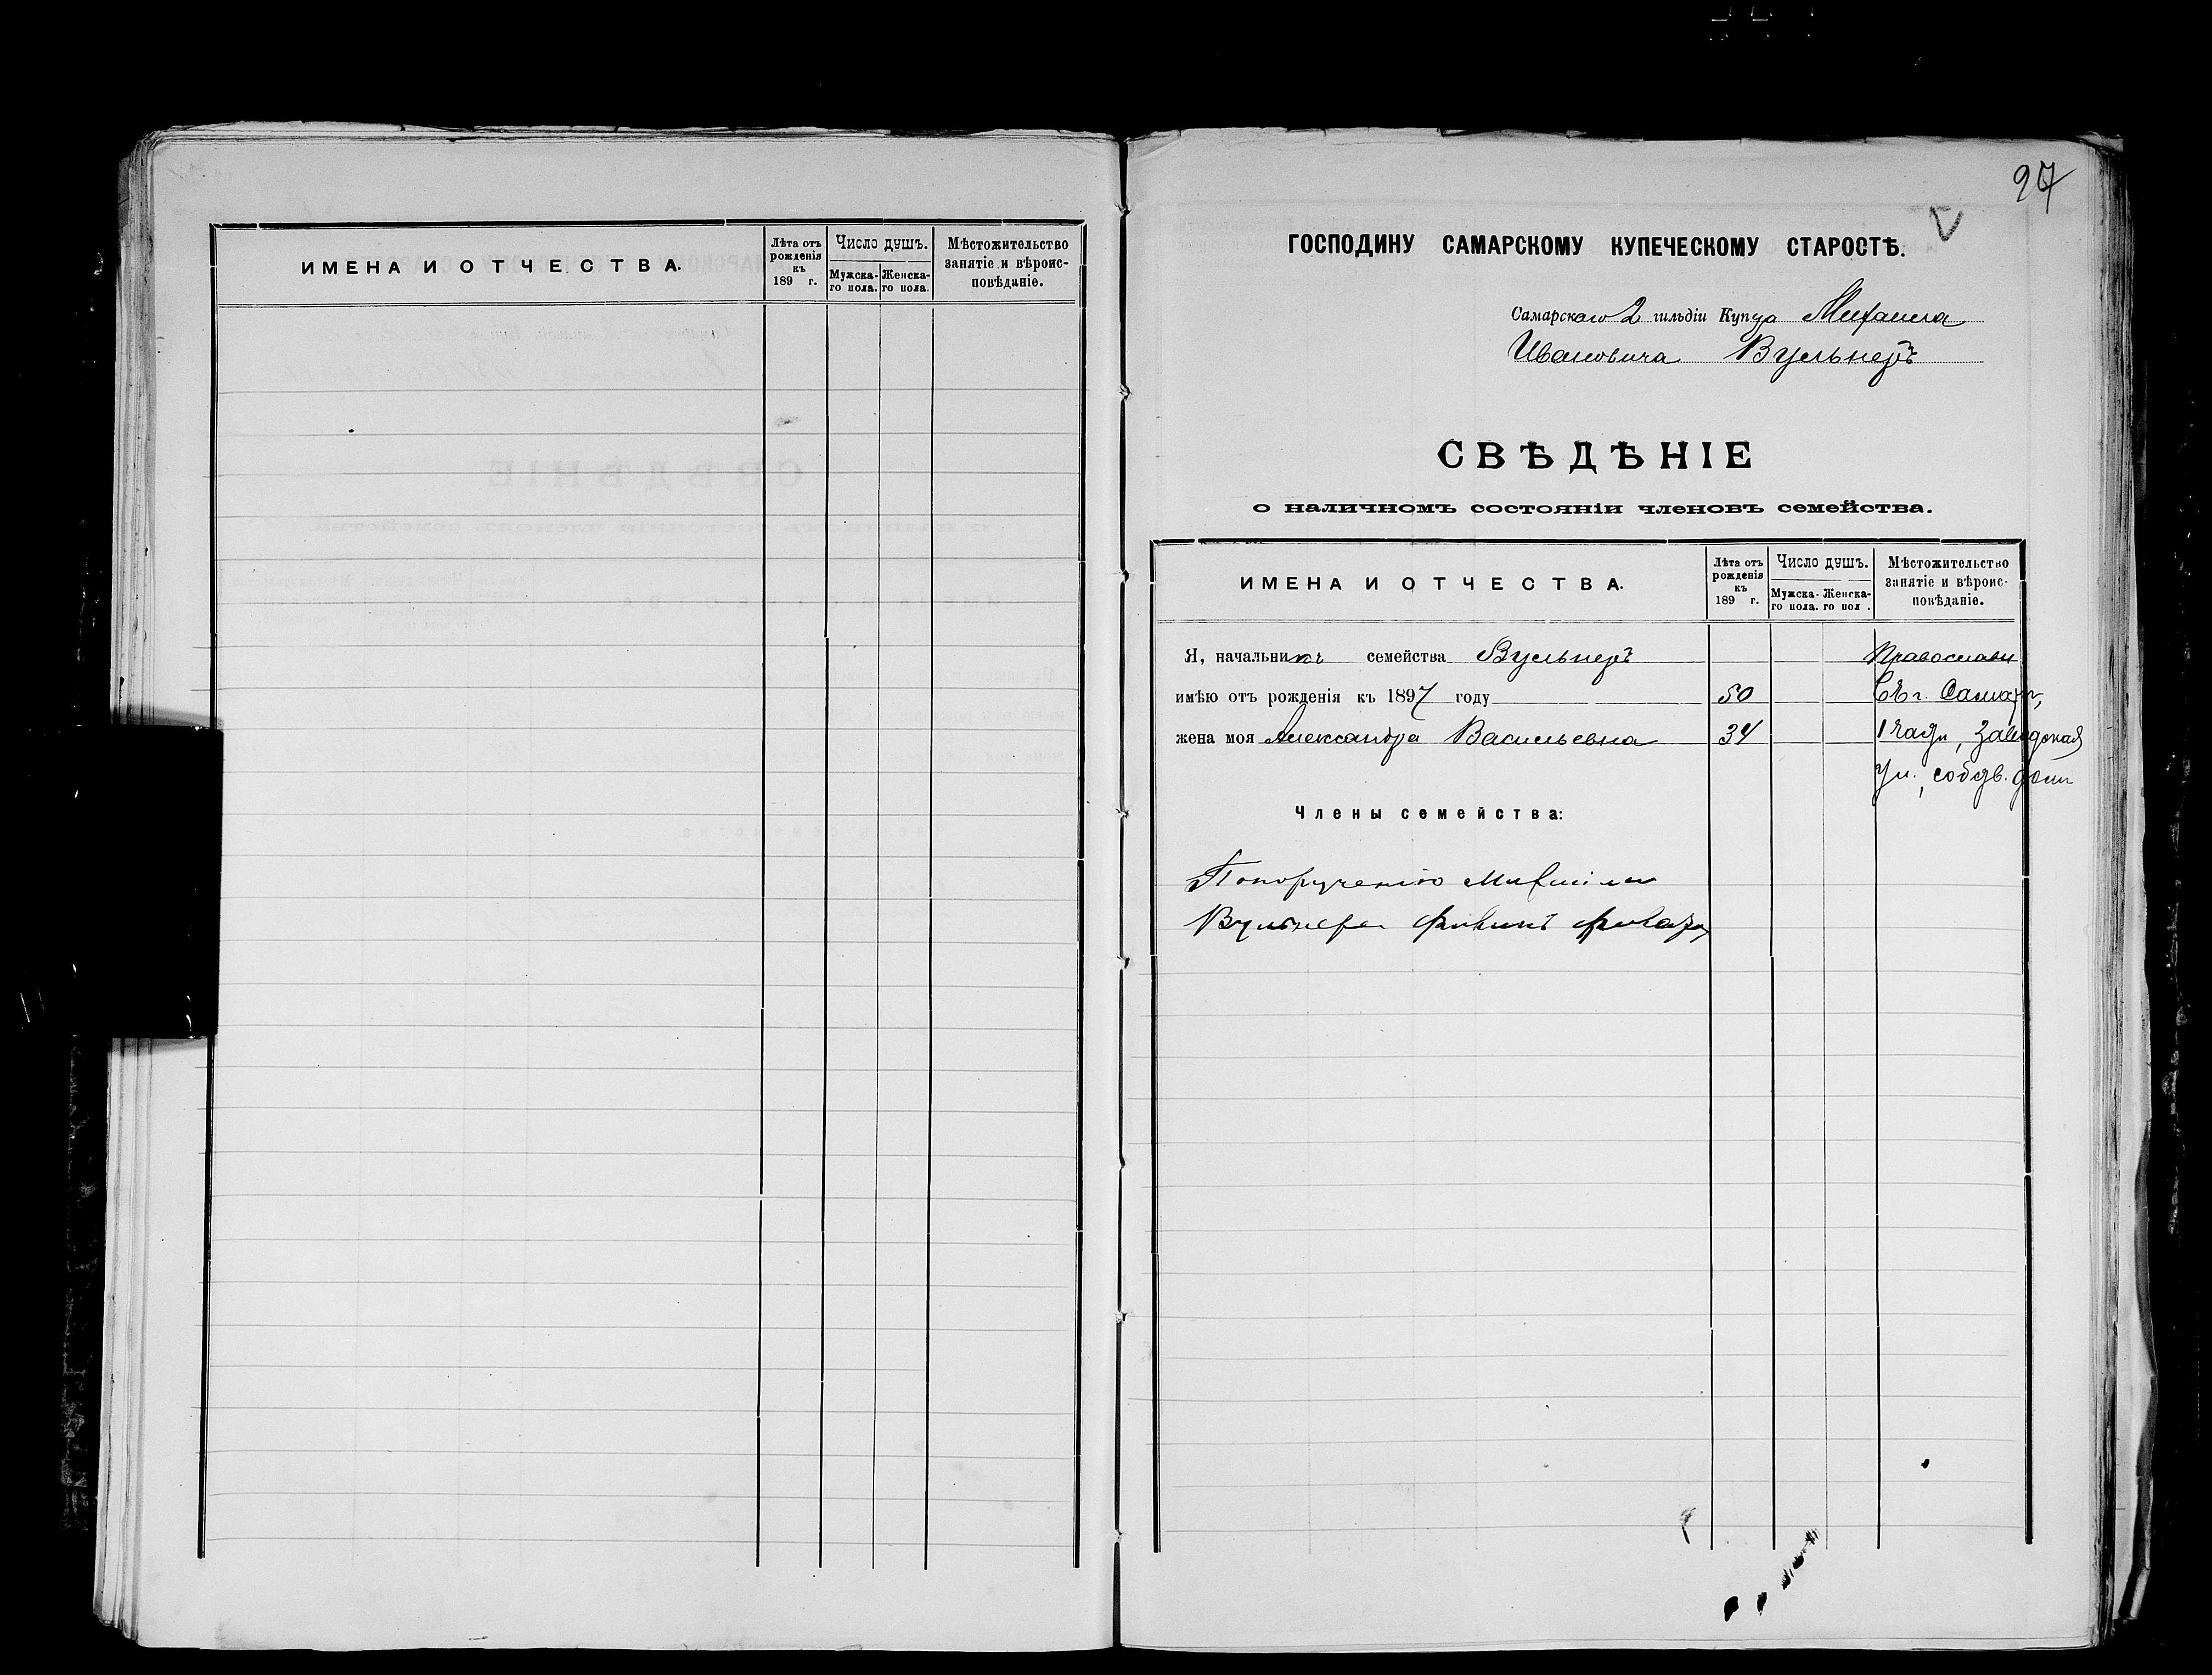 ИМЕНА И ОТЧЕСТВА.
Лѣта отъ рожденія къ 189 г.
Число душъ.
Мужска-го пола.
Женска-го пола.
Мѣстожительство занятіе и вѣроис-повѣданіе.
27
V
ГОСПОДИНУ САМАРСКОМУ КУПЕЧЕСКОМУ СТАРОСТѢ.
Самарскаго 2 гильдіи Купца Михаила
Ивановича Вульнеръ
СВѢДѢНІЕ
о наличномъ состояніи членовъ семейства.
ИМЕНА И ОТЧЕСТВА.
Лѣта отъ рожденія къ 189 г.
Число душъ.
Мужска-го пола.
Женска-го пол .
Мѣстожительство занятіе и вѣроис-повѣданіе.
Я, начальникъ семейства Вульнеръ Православн
имѣю отъ рожденія къ 1897 году 50 Въ г. Самарѣ,
жена моя Александра Васильевна 34 1 части, Заводская
ул., собств. домъ
Члены семейства:
По порученію Михаила
Вульнера